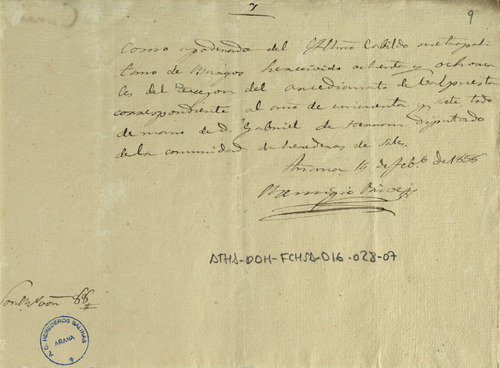 7
9
Como apoderado del Yltmo Cabildo metropoli
tano de Burgos he recibido ochenta y ocho rea
les del Excusado del arcedianato de Valpuesta
correspondiente al año de cincuenta y siete todo
de mano de D. Gabriel de diputado
de la comunidad de herederos de Sales.
Anana 14 de Feb.o de 1858
Remigio
ATHA-DOH-FCHSA-016-028-07
Son Rs von 88
A. C. HEREDEROS SALINAS
AÑANA